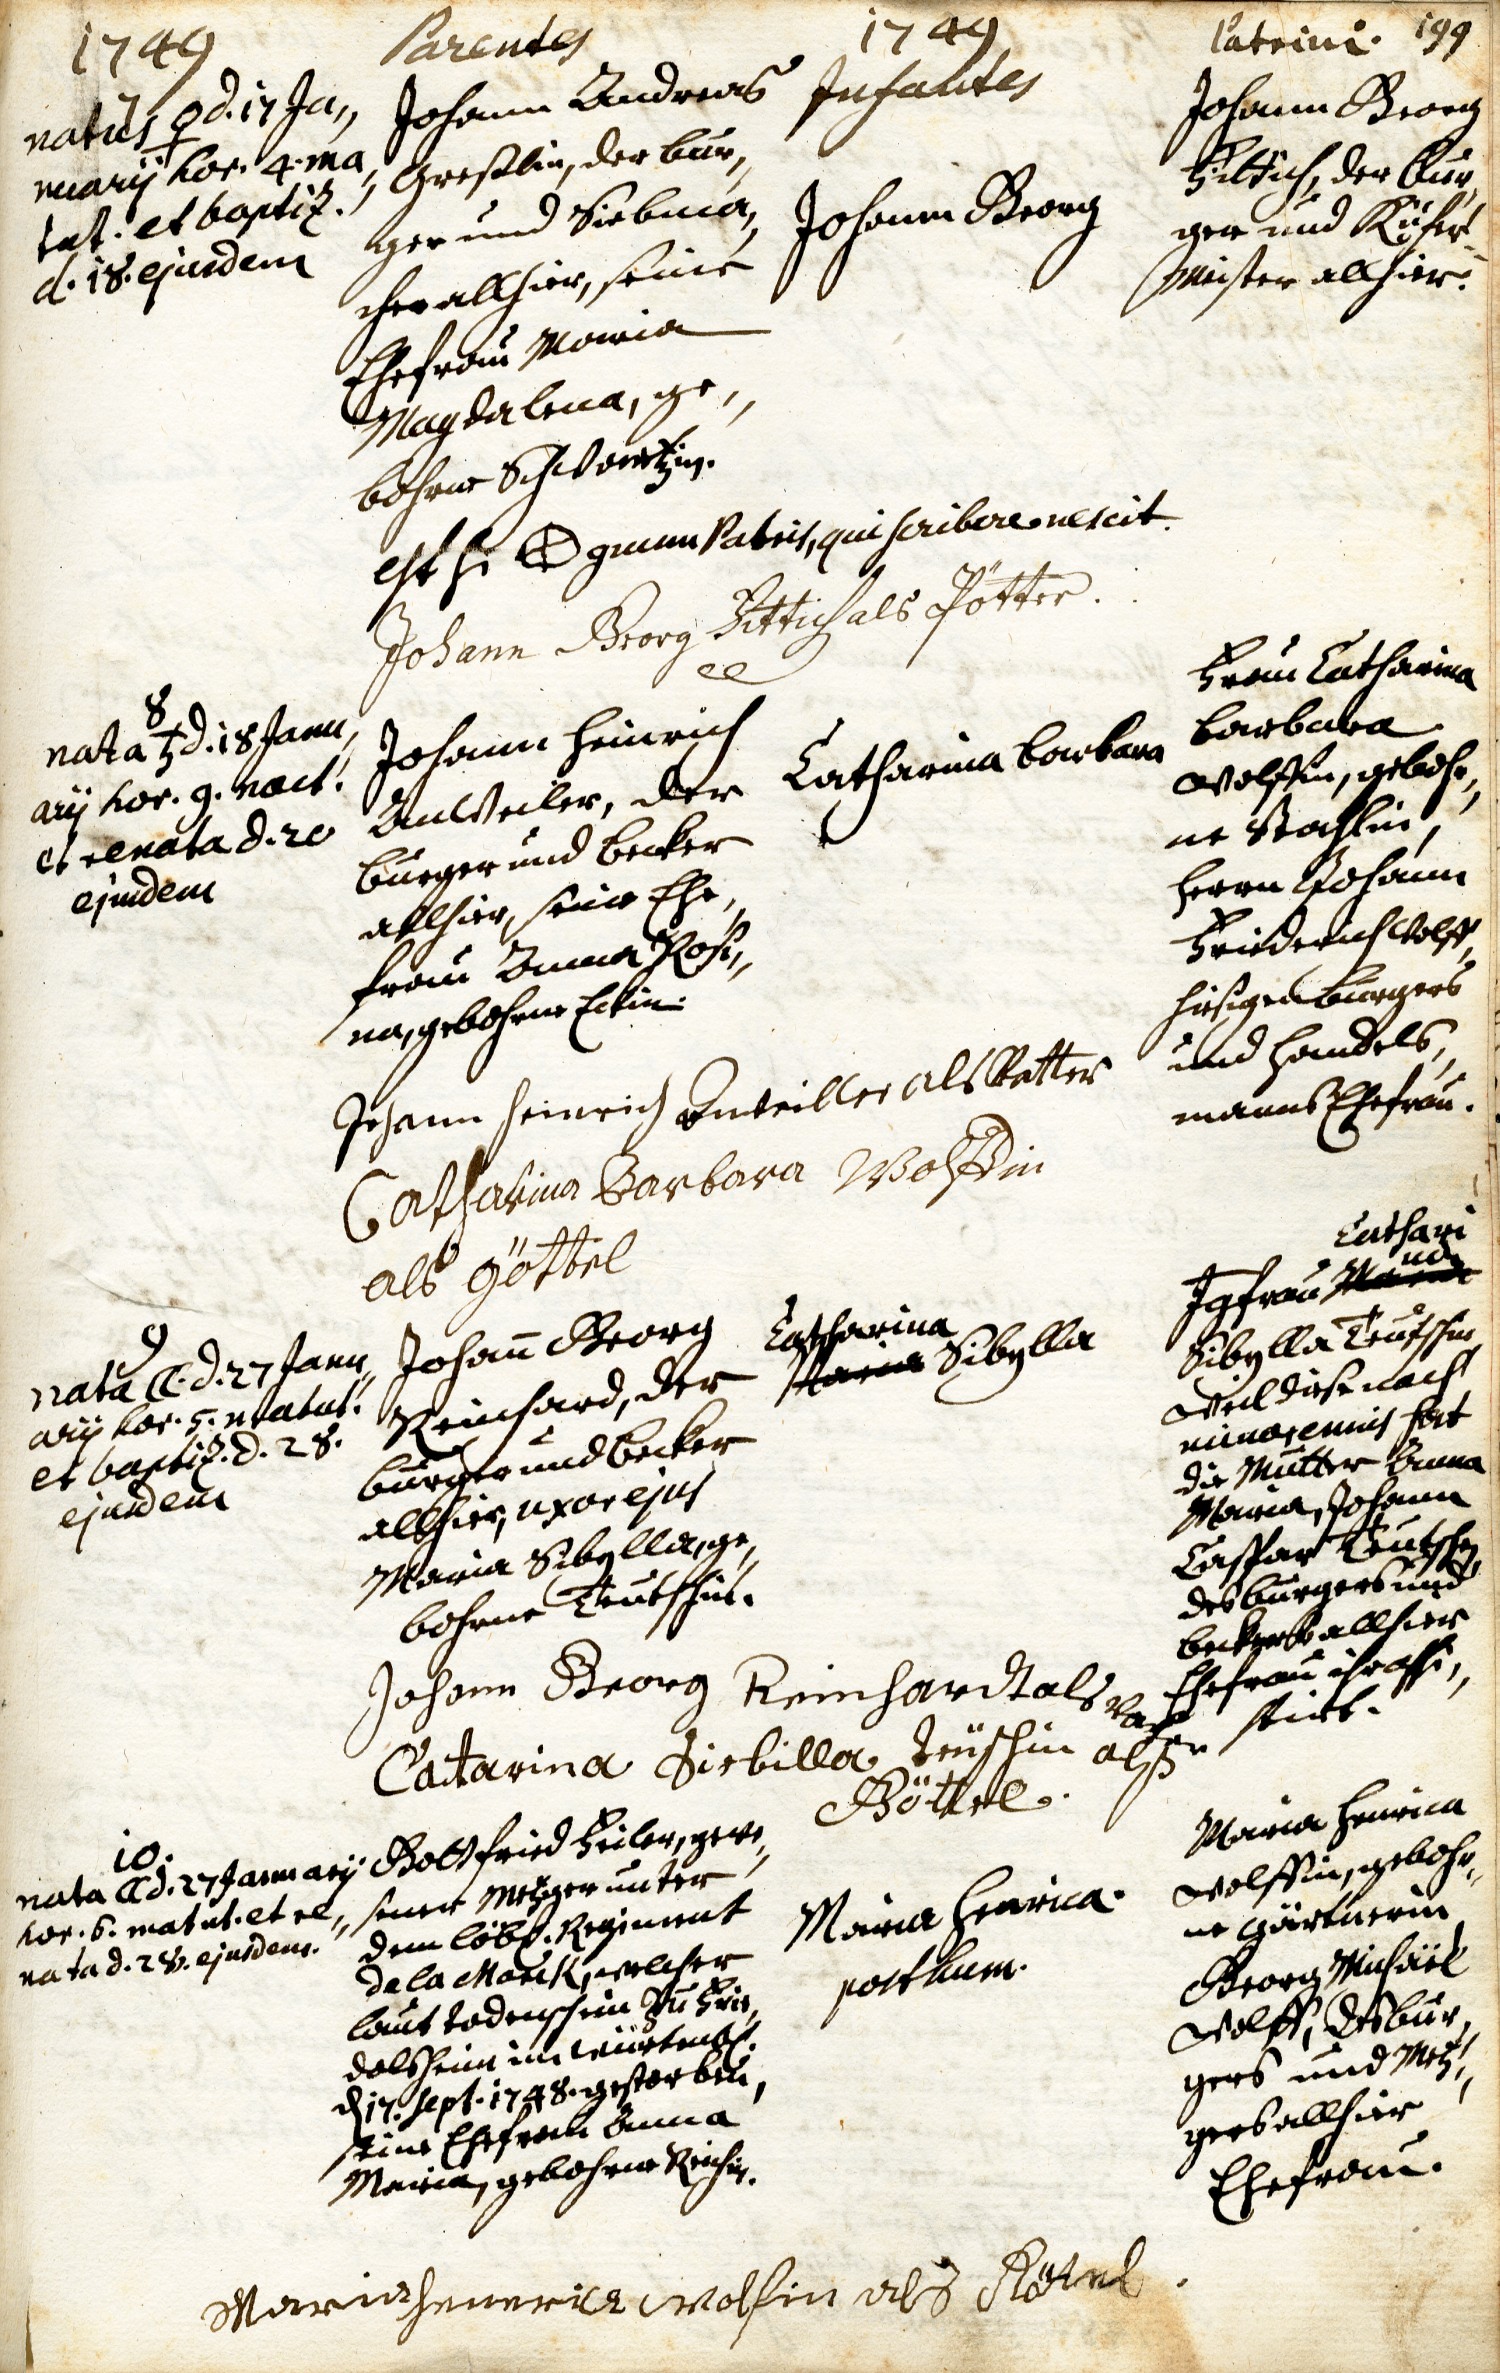 1749
Parentes
1749
Patrini. 199
Infantes
7
natus ♀ d. 17 Ja„
nuarij hor. 4. ma„
tut. et baptiz.
d. 18. ejusdem
Johann Andreas
Greßlin, der bur„
ger und Siebma„
cher allhier, seine
Ehefrau Maria
Magdalena, ge„
bohrne Schwartzin.
Johann Georg
Johann Georg
Zittich, der bur„
ger und Küfer„
meister allhier.
est hi ⊕ gnum Patris, qui scribere nescit.
Johann Georg Zittich als Pötter.
8
nata ♄ d. 18 Janu„
arij hor. 9. noct.
et renata d. 20
ejusdem
Johann Heinrich
Anweiler, der
burger und becker
allhier, seine Ehe„
frau Anna Rosi„
na, gebohrne Eckin.
Catharina barbara
Frau Catharina
barbara
Wolffin, gebohr„
ne Stahlin,
Herrn Johann
Friederich Wolff,
hiesigen burgers
und Handels„
manns Ehefrau.
Johann Heinrich Anweiller als Vatter
Catharina Barbara Wolffin
als göttel
9
nata ☾ d. 27 Janu„
arij hor. 5. matut.
et baptiz. d. 28.
ejusdem
Johann Georg
Reinhard, der
burger und becker
allhier, uxor ejus
Maria Sibylla, ge„
bohrne Teutschin.
Catharina
Maria Sibylla
Cathari
na
Jgfrau Maria
Sibylla Teutschin
weil diese noch
minorennis hat
die Mutter Anna
Maria, Johann
Caspar Teutschen
des burgers und
beckers allhier
Ehefrau ihr assi„
stirt.
Johann Georg Reinhardt als Vatter
Catarina Siebilla Teüschin alß
Göttel.
10.
nata ☾ d. 27 Januarij
hor. 6. matut. et re„
nata d. 28. ejusdem.
Gottfried Zeiler, gewe„
sener Metzger unter
dem löbl. Regiment
de la Marck, welcher
laut todenschein zu Frie„
dolsheim im würtenb.
d. 17. Sept. 1748. gestorben,
seine Ehefrau Anna
Maria, gebohrne Reichin.
Maria Henrica.
posthum.
Maria Henrica
Wolffin, gebohr„
ne Gärtnerin
Georg Michael
Wolff, des bur„
gers und Metz„
gers allhier
Ehefrau.
Maria henerica wolfin als Götel.